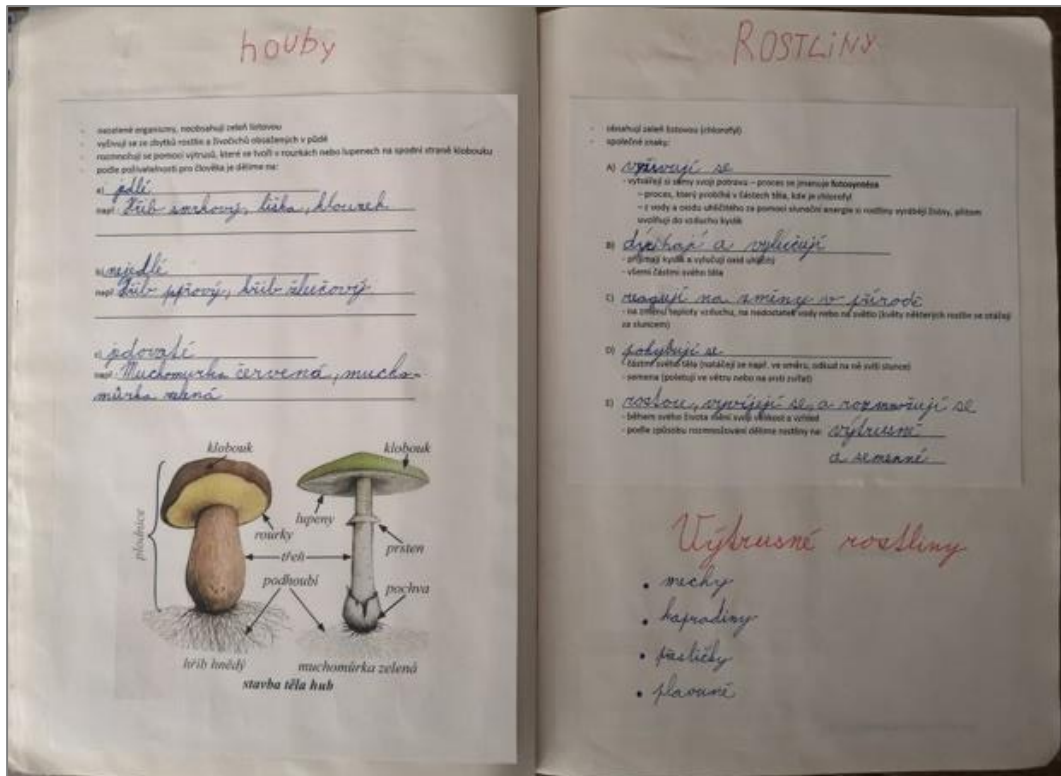 houby
- nezelené organismy, neobsahují zeleň listovou
- vyživují se ze zbytků rostlin a živočichů obsažených v půdě
- rozmnožují se pomocí výtrusů, které se tvoří v rourkách nebo lupenech na spodní straně klobouku
- podle poživatelnosti pro člověka je dělíme na:
a) jedlé
např. hřib smrkový, liška, klouzek
b) nejedlé
např. hřib pepřový, hřib žlučový
c) jedovaté
např. Muchomůrka červená, mucho-
můrka zelená
klobouk
klobouk
plodnice
lupeny
rourky
prsten
třeň
podhoubí
pochva
hřib hnědý
muchomůrka zelená
stavba těla hub
ROSTLINY
- obsahují zeleň listovou (chlorofyl)
- společné znaky:
A) vyživují se
- vytvářejí si samy svoji potravu – proces se jmenuje fotosyntéza
– proces, který probíhá v částech těla, kde je chlorofyl
– z vody a oxidu uhličitého za pomoci sluneční energie si rostliny vyrábějí živiny, přitom
uvolňují do vzduchu kyslík
B) dýchají a vylučují
- přijímají kyslík a vylučují oxid uhličitý
- všemi částmi svého těla
C) reagují na změny v přírodě
- na změnu teploty vzduchu, na nedostatek vody nebo na světlo (květy některých rostlin se otáčejí
za sluncem)
D) pohybují se
- částmi svého těla (natáčejí se např. ve směru, odkud na ně svítí slunce)
- semena (poletují ve větru nebo na srsti zvířat)
E) rostou, vyvíjejí se, a rozmnožují se
- během svého života mění svoji velikost a vzhled
- podle způsobu rozmnožování dělíme rostliny na: výtrusné
a semenné
Výtrusné rostliny
• mechy
• kapradiny
• přesličky
• plavuně